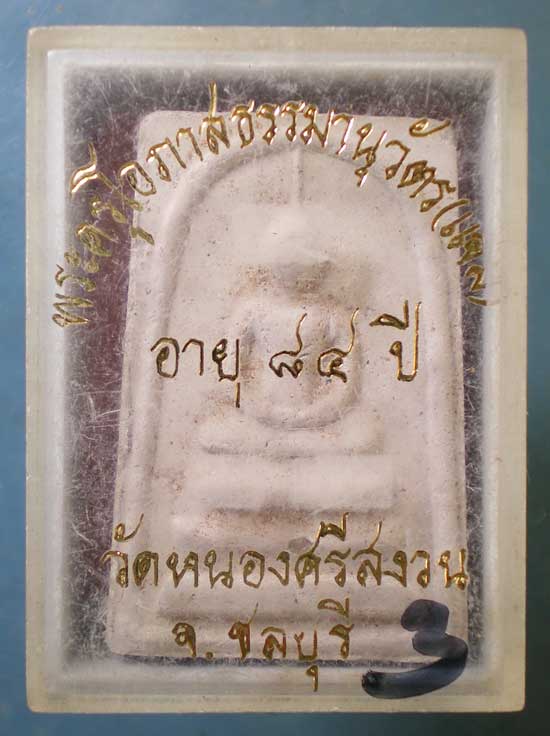 พระครูโอภาสธรรมานุวัตร(แฉล)
อายุ ๘๔ ปี
วัดหนองศรีสงวน
จ.ชลบุรี
3